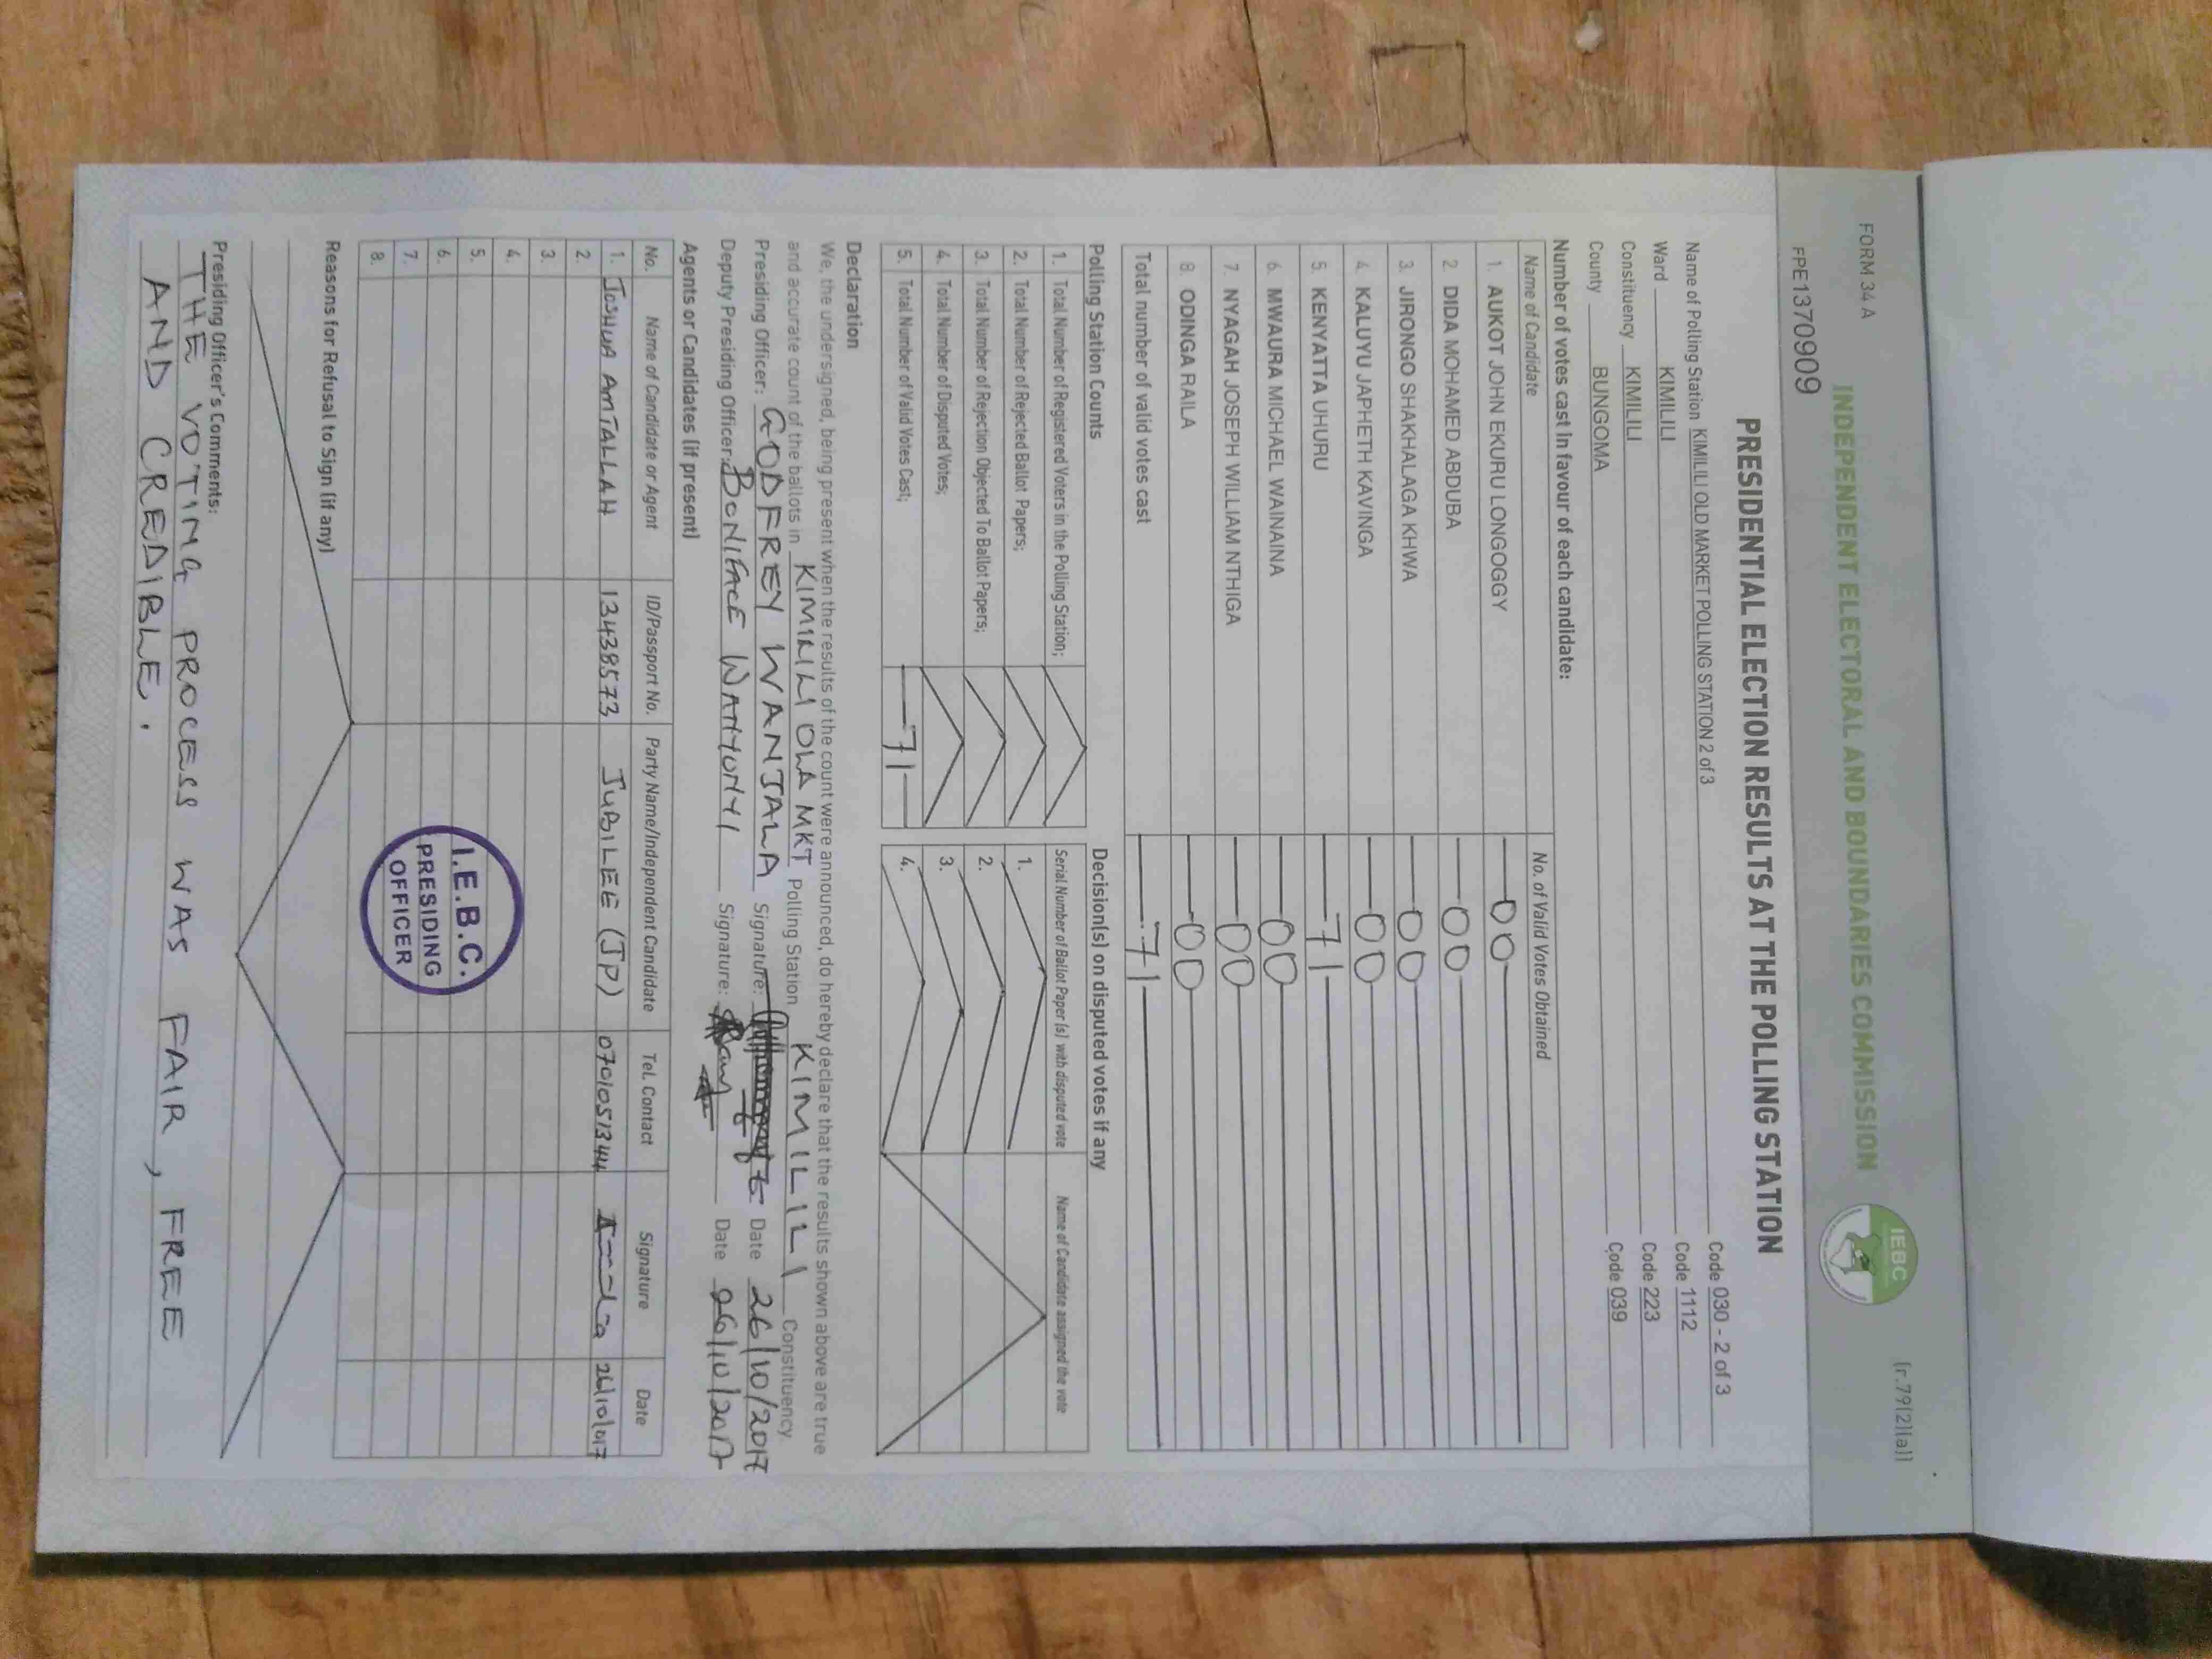 FORM 34 A
(r.79(2)(a))
INDEPENDENT ELECTORAL AND BOUNDARIES COMMISSION
IEBC
FPE1370909
PRESIDENTIAL ELECTION RESULTS AT THE POLLING STATION
Name of Polling Station KIMILILI OLD MARKET POLLING STATION 2 of 3 Code 030 - 2 of 3
Ward KIMILILI Code 1112
Constituency KIMILILI Code 223
County BUNGOMA Code 039
Number of votes cast in favour of each candidate:
Name of Candidate No. of Valid Votes Obtained
1. AUKOT JOHN EKURU LONGOGGY 00
2. DIDA MOHAMED ABDUBA 00
3. JIRONGO SHAKHALAGA KHWA 00
4. KALUYU JAPHETH KAVINGA 00
5. KENYATTA UHURU 71
6. MWAURA MICHAEL WAINAINA 00
7. NYAGAH JOSEPH WILLIAM NTHIGA 00
8. ODINGA RAILA 00
Total number of valid votes cast 71
Polling Station Counts Decision(s) on disputed votes if any
Serial Number of Ballot Paper (s) with disputed vote Name of Candidate assigned the vote
1. Total Number of Registered Voters in the Polling Station;
2. Total Number of Rejected Ballot Papers; 1.
3. Total Number of Rejection Objected To Ballot Papers; 2.
4. Total Number of Disputed Votes; 3.
5. Total Number of Valid Votes Cast; 71 4.
Declaration
We, the undersigned, being present when the results of the count were announced, do hereby declare that the results shown above are true
and accurate count of the ballots in KIMILILI OLD MKT Polling Station KIMILILI Constituency.
Presiding Officer: GODFREY WANJALA Signature: Date 26/10/2017
Deputy Presiding Officer: BONIFACE WANYONYI Signature: Date 26/10/2017
Agents or Candidates (if present)
No. Name of Candidate or Agent ID/Passport No. Party Name/Independent Candidate Tel. Contact Signature Date
1. JOSHUA AMTALLAH 13438573 JUBILEE (JP) 0701051344 26/10/017
2.
3.
4.
5.
6.
7.
8.
I.E.B.C.
PRESIDING
OFFICER
Reasons for Refusal to Sign (if any)
Presiding Officer's Comments:
THE VOTING PROCESS WAS FAIR, FREE
AND CREDIBLE.